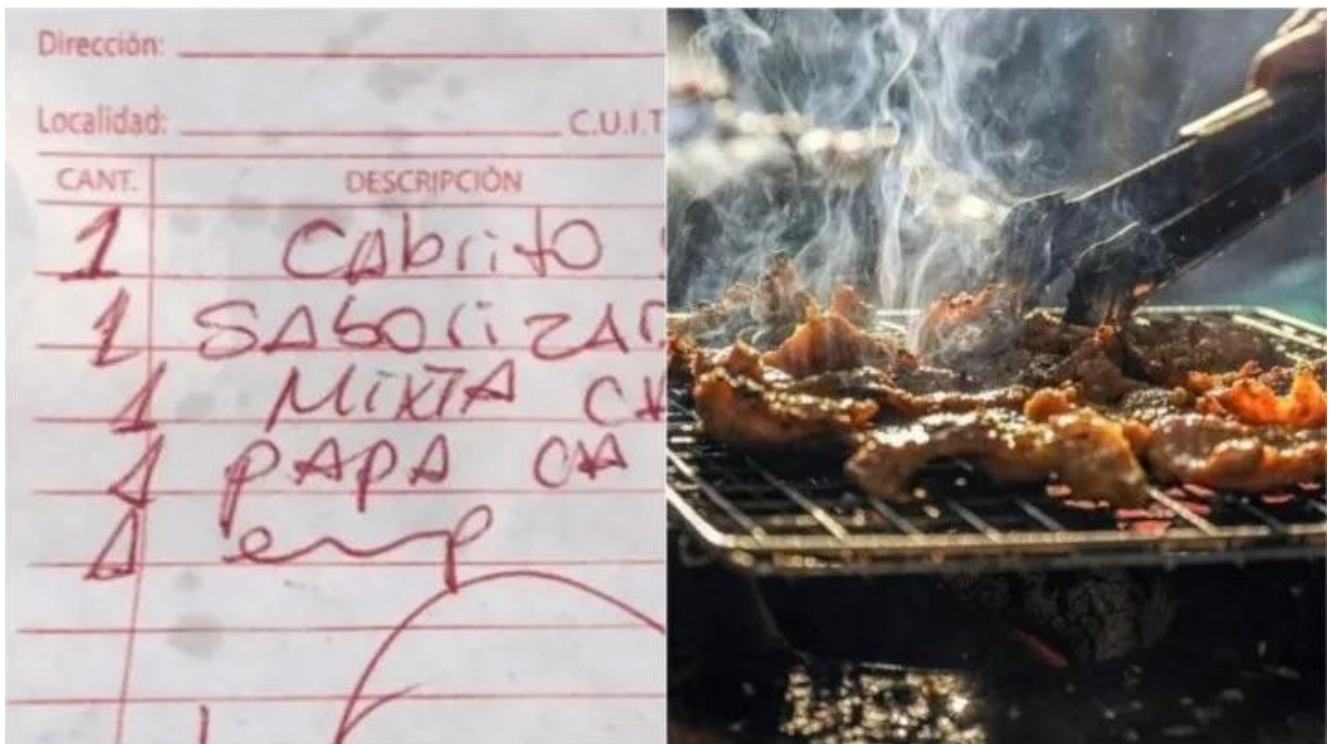 Dirección:
Localidad: C.U.I.T
CANT. DESCRIPCIÓN
1 CAbrito
1 SAborizAd
1 MixTA CH
1 PAPA CH
1 emp